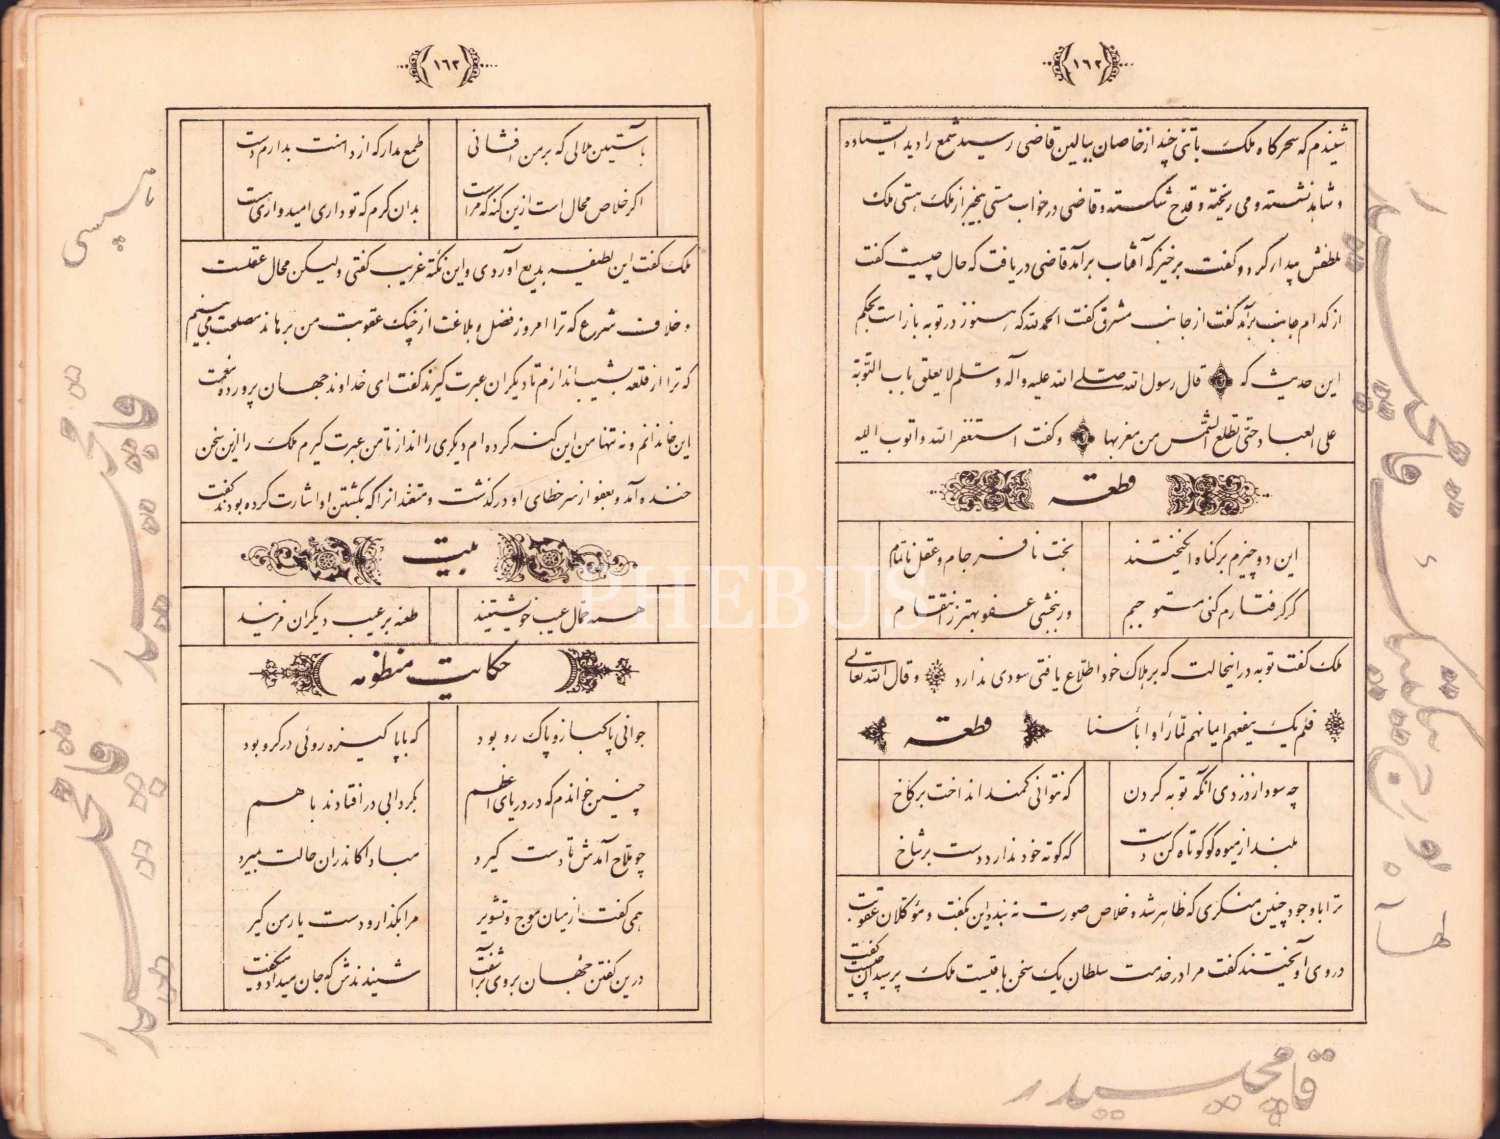 ١٦٢
شنیدم که سحرکاه ملک با تنی چند از خاصان ببالین قاضی رسید شمع را دید ایستاده
و شاهد نشسته و می ریخته و قدح شکسته و قاضی در خواب مستی بیخبر از ملک هستی ملک
بلطفش بیدار کرد و گفت برخیز که آفتاب برآمد قاضی دریافت که حال چیست گفت
از کدام جانب برآمد گفت از جانب مشرق گفت الحمد لله که هنوز در توبه باز است بحکم
این حدیث که قال رسول الله صلی الله علیه وآله وسلم لا یغلق باب التوبة
علی العباد حتی تطلع الشمس من مغربها و گفت استغفر الله واتوب الیه
قطعه
این دو چیزم بر کناه انگیختند بخت نافرجام و عقل ناتمام
گر گرفتارم کنی مستوجبم ور ببخشی عفو بهتر ز انتقام
ملک گفت توبه در اینحالت که بر هلاک خود اطلاع یافتی سودی ندارد و قال الله تعالی
فلم یک ینفعهم ایمانهم لما رأوا بأسنا قطعه
چه سود از دزدی آنکه توبه کردن که نتوانی کمند انداخت بر کاخ
بلند از میوه کو کوتاه کن دست که کوته خود ندارد دست بر شاخ
ترا با وجود چنین منکری که ظاهر شد خلاص صورت نبندد این بگفت و موکلان عقوبت
در وی آویختند گفت مرا در خدمت سلطان یک سخن باقیست ملک پرسید این چیست گفت
قاپچیدر
١٦٣
بآستین ملالی که بر من افشانی طمع مدار که از دامنت بدارم دست
اکر خلاص محال است ازین کنه که مراست بدان کرم که تو داری امیدواری هست
ملک گفت این لطیفه بدیع آوردی و این نکته غریب گفتی ولیکن محال عقلست
و خلاف شرع که ترا امروز فضل و بلاغت از چنک عقوبت من برهاند مصلحت می بینم
که ترا از قلعه بشیب اندازم تا دیگران عبرت گیرند گفت ای خداوند جهان پرورده نعمت
این خاندانم و نه تنها من این کنه کرده ام دیگری را انداز تا من عبرت گیرم ملک را ازین سخن
خنده آمد و بعفو از سر خطای او در گذشت و متعندانرا که بکشتن او اشارت کرده بودند گفت
بیت
همه حمال عیب خویشتنید طعنه بر عیب دیگران مزنید
حکایت منظومه
جوانی پاکباز و پاک رو بود که با پاکیزه روئی در کرو بود
چنین خواندم که در دریای اعظم بگردابی در افتادند با هم
چو ملاح آمدش تا دست گیرد مبادا کاندران حالت بمیرد
همی گفت از میان موج و تشویر مرا بگذار و دست یار من گیر
درین گفتن جهان بر وی برآشفت شنیدندش که جان میداد و میگفت
PHEBUS